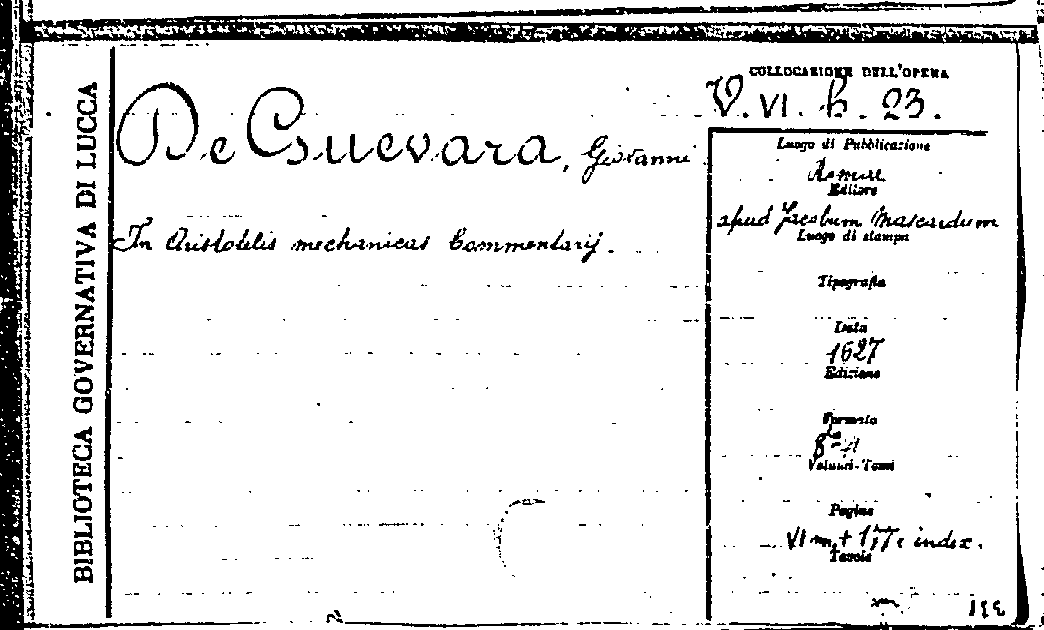 BIBLIOTECA GOVERNATIVA DI LUCCA
COLLOCAZIONE DELL'OPERA
V. VI. b. 23.
De Guevara, Giovanni
In Aristotelis mechanicas Commentarij.
Luogo di Pubblicazione
Romae
Editore
apud Jacobum Mascardum
Luogo di stampa
Tipografia
Data
1627
Edizione
Formato
Volumi-Tomi
Pagine
index.
Tavole